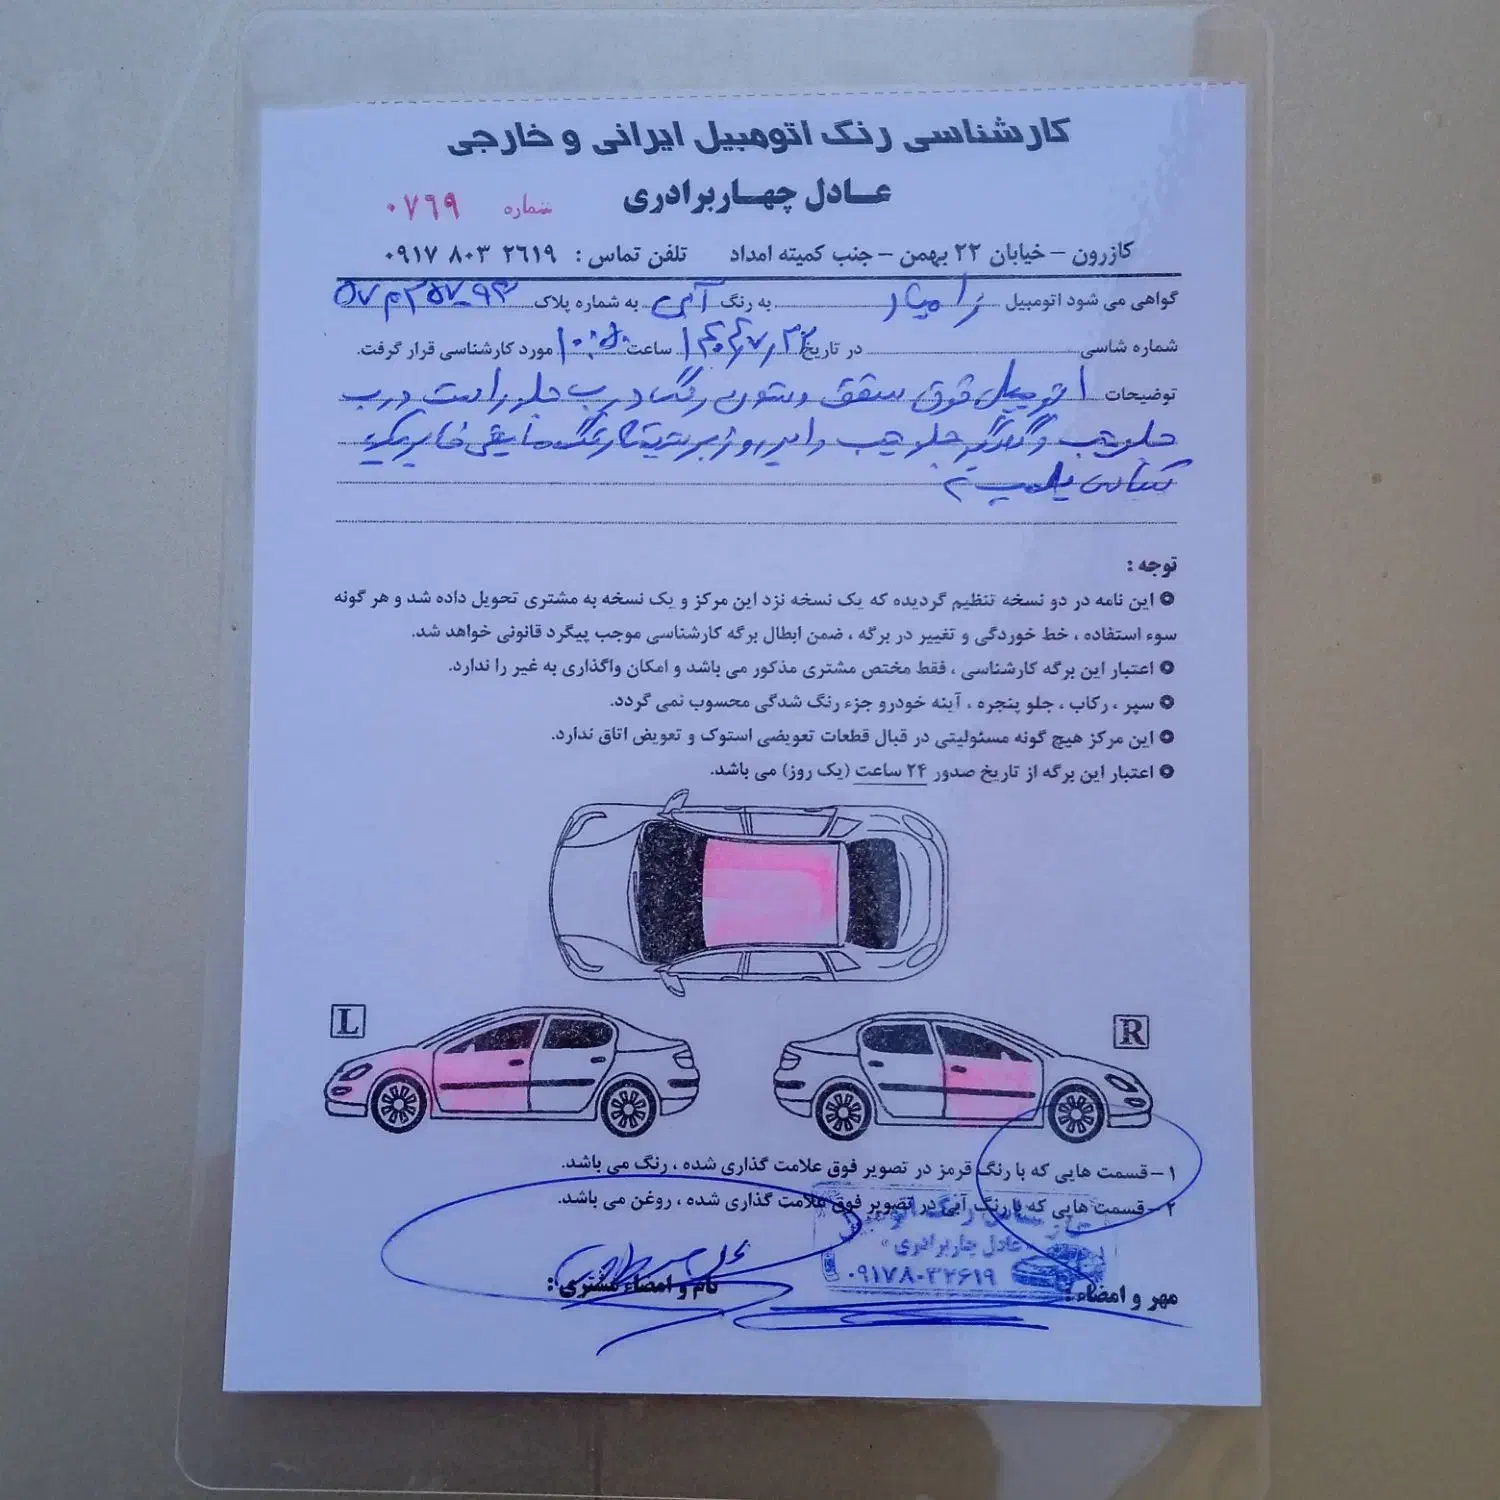 کارشناسی رنگ اتومبیل ایرانی و خارجی
عادل چهاربرادری
شماره ۰۷۶۹
کازرون – خیابان ۲۲ بهمن – جنب کمیته امداد تلفن تماس : ۰۹۱۷ ۸۰۳ ۲۶۱۹
گواهی می شود اتومبیل زامیاد به رنگ آبی به شماره پلاک
شماره شاسی در تاریخ ساعت مورد کارشناسی قرار گرفت.
توضیحات اتومبیل فوق سقف و ستون رنگ درب جلو راست درب
جلو چپ و گلگیر جلو چپ
توجه :
این نامه در دو نسخه تنظیم گردیده که یک نسخه نزد این مرکز و یک نسخه به مشتری تحویل داده شد و هر گونه
سوء استفاده ، خط خوردگی و تغییر در برگه ، ضمن ابطال برگه کارشناسی موجب پیگرد قانونی خواهد شد.
اعتبار این برگه کارشناسی ، فقط مختص مشتری مذکور می باشد و امکان واگذاری به غیر را ندارد.
سپر ، رکاب ، جلو پنجره ، آینه خودرو جزء رنگ شدگی محسوب نمی گردد.
این مرکز هیچ گونه مسئولیتی در قبال قطعات تعویضی استوک و تعویض اتاق ندارد.
اعتبار این برگه از تاریخ صدور ۲۴ ساعت (یک روز) می باشد.
L
R
۱ – قسمت هایی که با رنگ قرمز در تصویر فوق علامت گذاری شده ، رنگ می باشد.
۲ – قسمت هایی که با رنگ آبی در تصویر فوق علامت گذاری شده ، روغن می باشد.
کارشناسی رنگ اتومبیل
عادل چاربرادری
۰۹۱۷۸۰۳۲۶۱۹
مهر و امضاء : نام و امضاء مشتری :